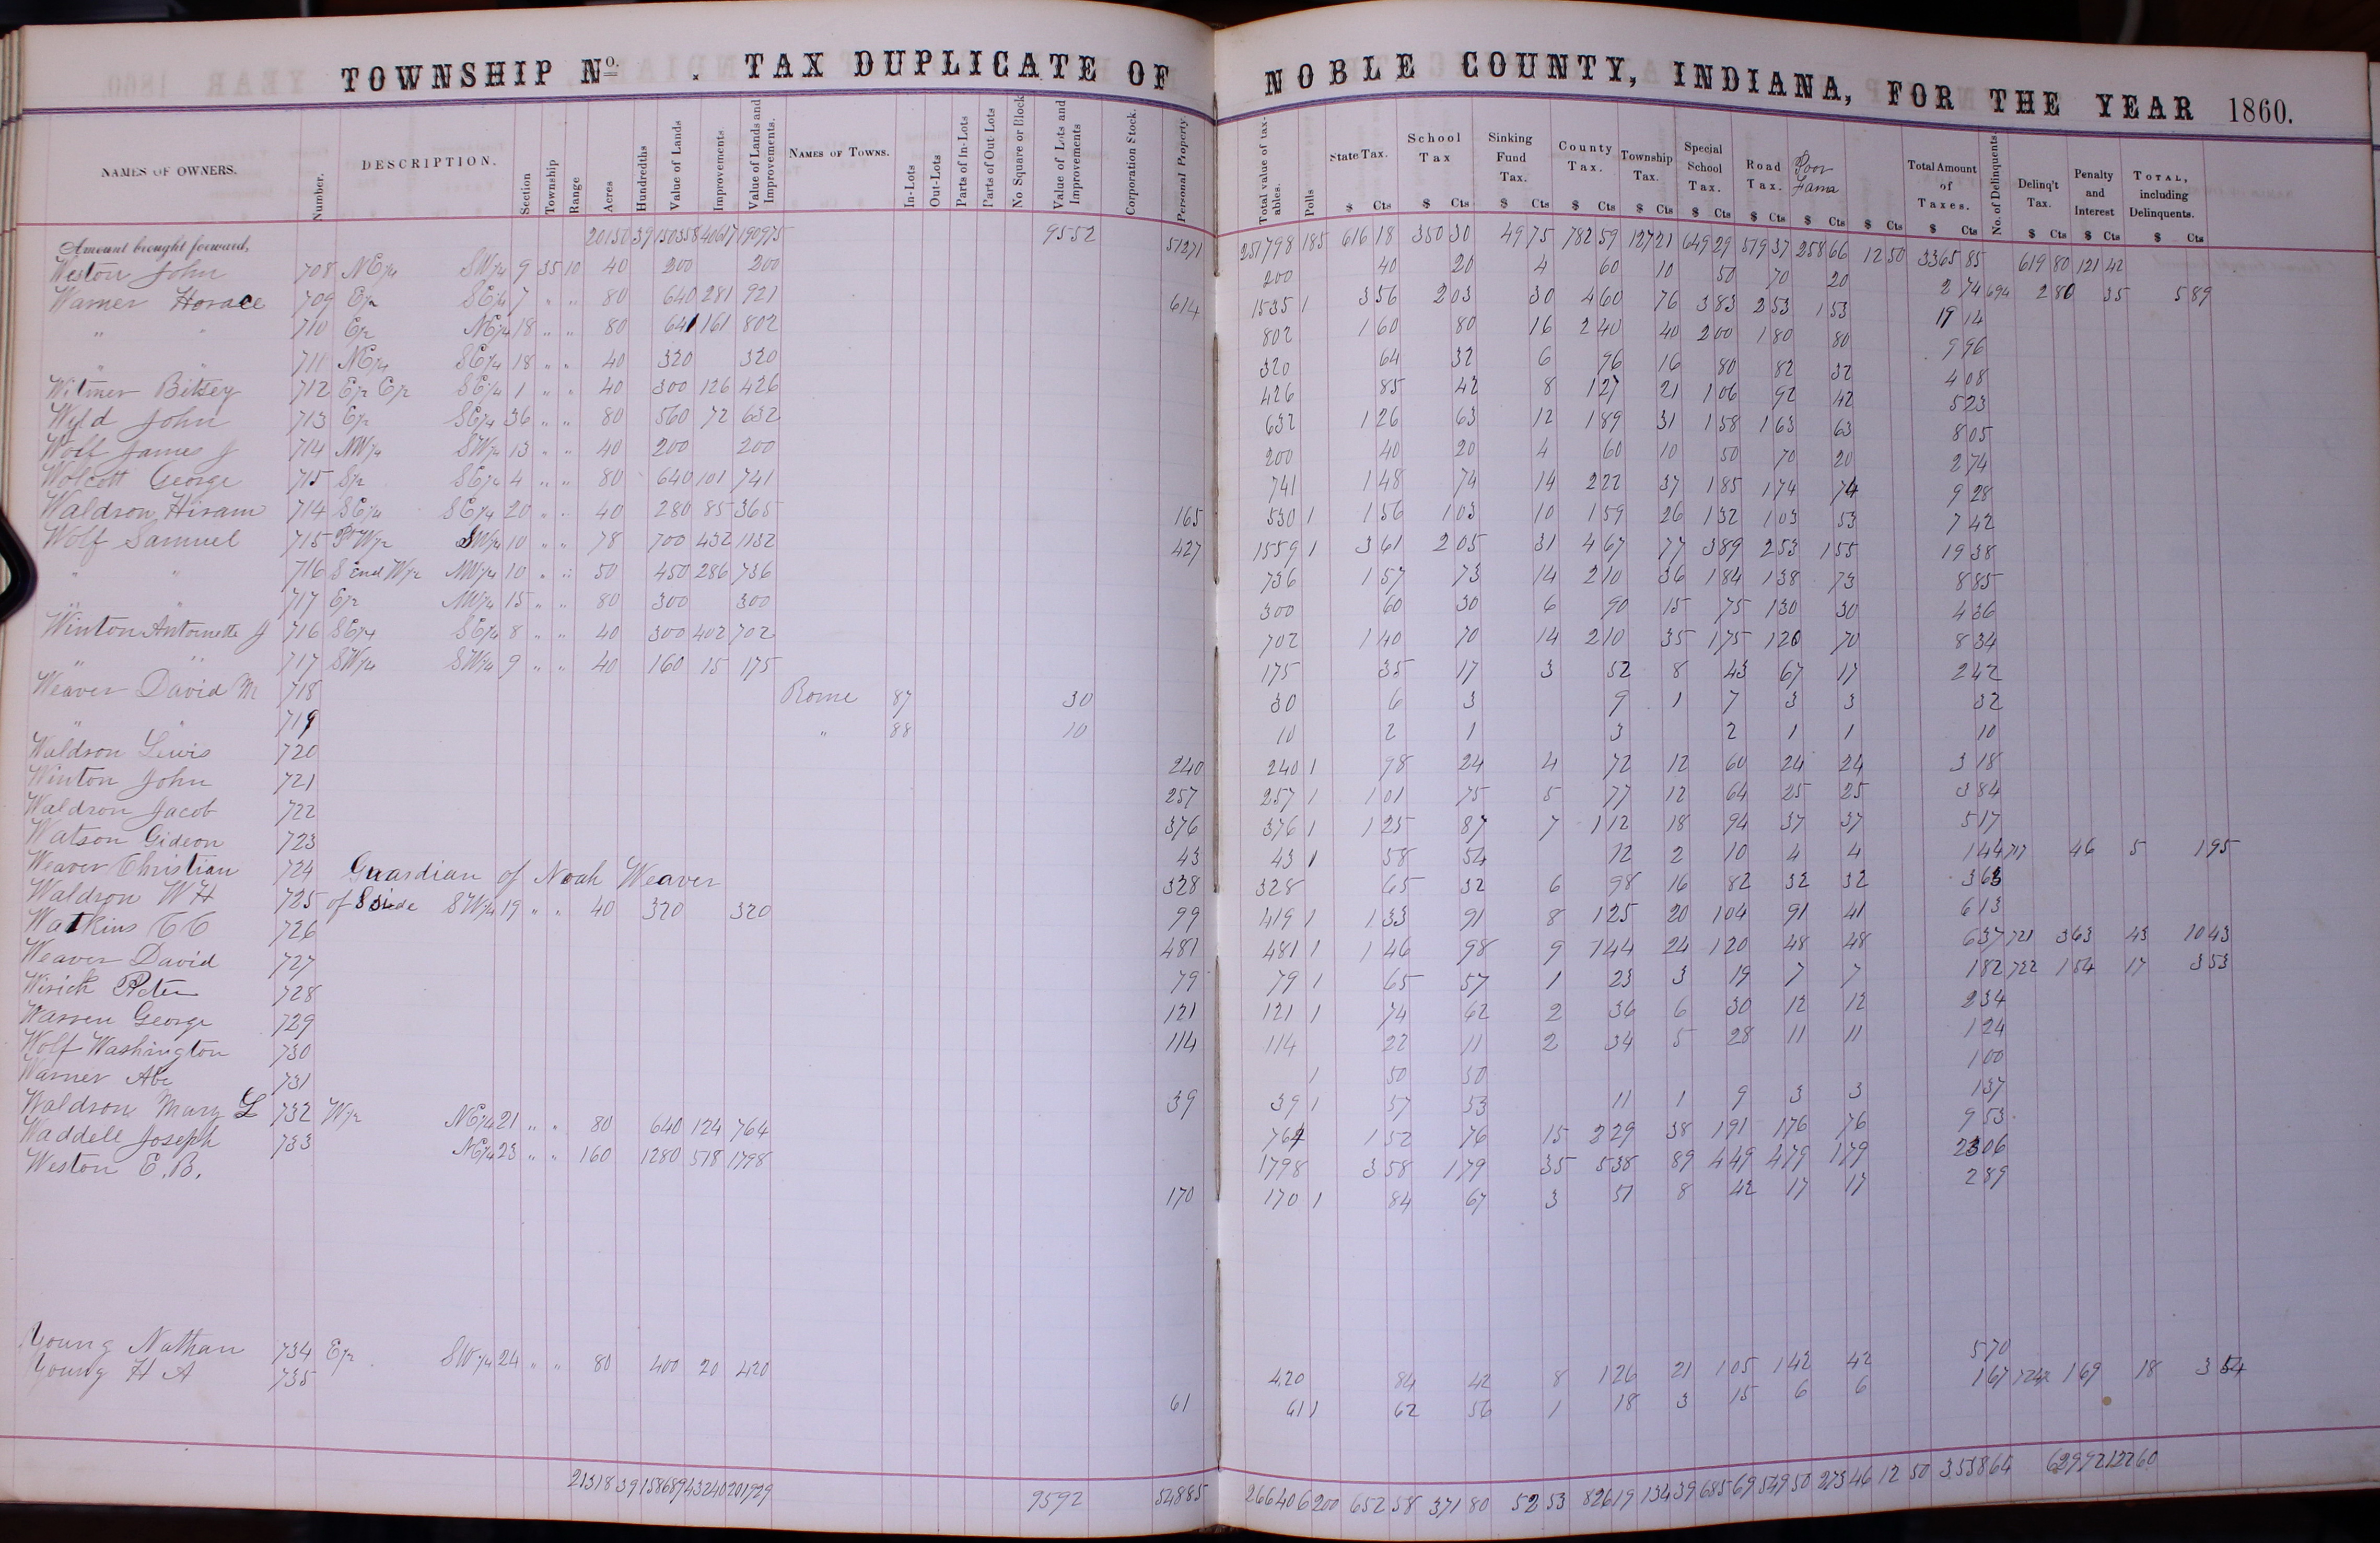 TOWNSHIP No. . TAX DUPLICATE OF NOBLE COUNTY, INDIANA, FOR THE YEAR 1860.
NAMES OF OWNERS. Number. DESCRIPTION. Section Township Range Acres Hundredths Value of Lands Improvements. Value of Lands and Improvements. NAMES OF TOWNS. In-Lots Out-Lots Parts of In-Lots Parts of Out Lots No Square or Block Value of Lots and Improvements Corporation Stock. Personal Property. Total value of taxables. Polls State Tax. School Tax Sinking Fund Tax. County Tax. Township Tax. Special School Tax. Road Tax. Poor Farm Total Amount of Taxes. No. of Delinquents Delinq't Tax. Penalty and Interest TOTAL, including Delinquents.
$ Cts $ Cts $ Cts $ Cts $ Cts $ Cts $ Cts $ Cts $ Cts $ Cts $ Cts $ Cts $ Cts
Amount brought forward, 20130 39 150358 40617 190975 9552 51271 251798 185 616 18 350 30 49 75 782 59 127 21 649 29 579 37 258 66 12 50 3365 85 619 80 121 42
Weston John 708 NE/4 SW/4 9 35 10 40 200 200 200 40 20 4 60 10 50 70 20 2 74 694 2 80 35 5 89
Warner Horace 709 E/2 SE/4 7 " " 80 640 281 921 614 1535 1 3 56 2 03 30 4 60 76 3 83 2 53 1 53 19 14
" " 710 E/2 NE/4 18 " " 80 641 161 802 802 1 60 80 16 2 40 40 2 00 1 80 80 9 96
" " 711 NE/4 SE/4 18 " " 40 320 320 320 64 32 6 96 16 80 82 32 4 08
Witmer Bitsey 712 E/2 E/2 SE/4 1 " " 40 300 126 426 426 85 42 8 1 27 21 1 06 92 42 5 23
Wyld John 713 E/2 SE/4 36 " " 80 560 72 632 632 1 26 63 12 1 89 31 1 58 1 63 63 8 05
Wolf James J 714 NW/4 SW/4 13 " " 40 200 200 200 40 20 4 60 10 50 70 20 2 74
Wolcott George 715 S/2 SE/4 4 " " 80 640 101 741 741 1 48 74 14 2 22 37 1 85 1 74 74 9 28
Waldron Hiram 714 SE/4 SE/4 20 " " 40 280 85 365 165 530 1 1 56 1 03 10 1 59 26 1 32 1 03 53 7 42
Wolf Samuel 715 Pt W/2 SW/4 10 " " 78 700 432 1132 427 1559 1 3 61 2 05 31 4 67 77 3 89 2 53 1 55 19 38
" " 716 S End W/2 NW/4 10 " " 50 450 286 736 736 1 57 73 14 2 10 36 1 84 1 38 73 8 85
" " 717 E/2 NW/4 15 " " 80 300 300 300 60 30 6 90 15 75 1 30 30 4 36
Winton Antoinette J 716 SE/4 SE/4 8 " " 40 300 402 702 702 1 40 70 14 2 10 35 1 75 1 20 70 8 34
" " 717 SW/4 SW/4 9 " " 40 160 15 175 175 35 17 3 52 8 43 67 17 2 42
Weaver David M 718 Rome 87 30 30 6 3 9 1 7 3 3 32
" " 719 " 88 10 10 2 1 3 2 1 1 10
Waldron Lewis 720 240 240 1 98 24 4 72 12 60 24 24 3 18
Winton John 721 257 257 1 1 01 75 5 77 12 64 25 25 3 84
Waldron Jacob 722 376 376 1 1 25 87 7 1 12 18 94 37 37 5 17
Watson Gideon 723 43 43 1 58 54 12 2 10 4 4 1 44 717 46 5 1 95
Weaver Christian 724 Guardian of Noah Weaver 328 328 65 32 6 98 16 82 32 32 3 63
Waldron W H 725 of S side SW/4 19 " " 40 320 320 99 419 1 1 33 91 8 1 25 20 1 04 91 41 6 13
Watkins C C 726 481 481 1 1 46 98 9 1 44 24 1 20 48 48 6 37 721 3 63 43 10 43
Weaver David 727 79 79 1 65 57 1 23 3 19 7 7 1 82 722 1 54 17 3 53
Wirick Peter 728 121 121 1 74 62 2 36 6 30 12 12 2 34
Warren George 729 114 114 22 11 2 34 5 28 11 11 1 24
Wolf Washington 730 1 50 50 1 00
Warner Abe 731 39 39 1 57 53 11 1 9 3 3 1 37
Waldron Mary L 732 W/2 NE/4 21 " " 80 640 124 764 764 1 52 76 15 2 29 38 1 91 1 76 76 9 53
Waddell Joseph 733 NE/4 23 " " 160 1280 518 1798 1798 3 58 1 79 35 5 38 89 4 49 4 79 1 79 23 06
Weston E. B. 170 170 1 84 67 3 51 8 42 17 17 2 89
Young Nathan 734 E/2 SW/4 24 " " 80 400 20 420 420 84 42 8 1 26 21 1 05 1 42 42 5 70
Young H A 735 61 61 1 62 56 1 18 3 15 6 6 1 67 1 69 18 3 54
21318 39 158689 43240 201929 9592 54885 266406 200 652 58 371 80 52 53 826 19 134 39 685 69 549 50 273 46 12 50 3538 64 629 92 122 60